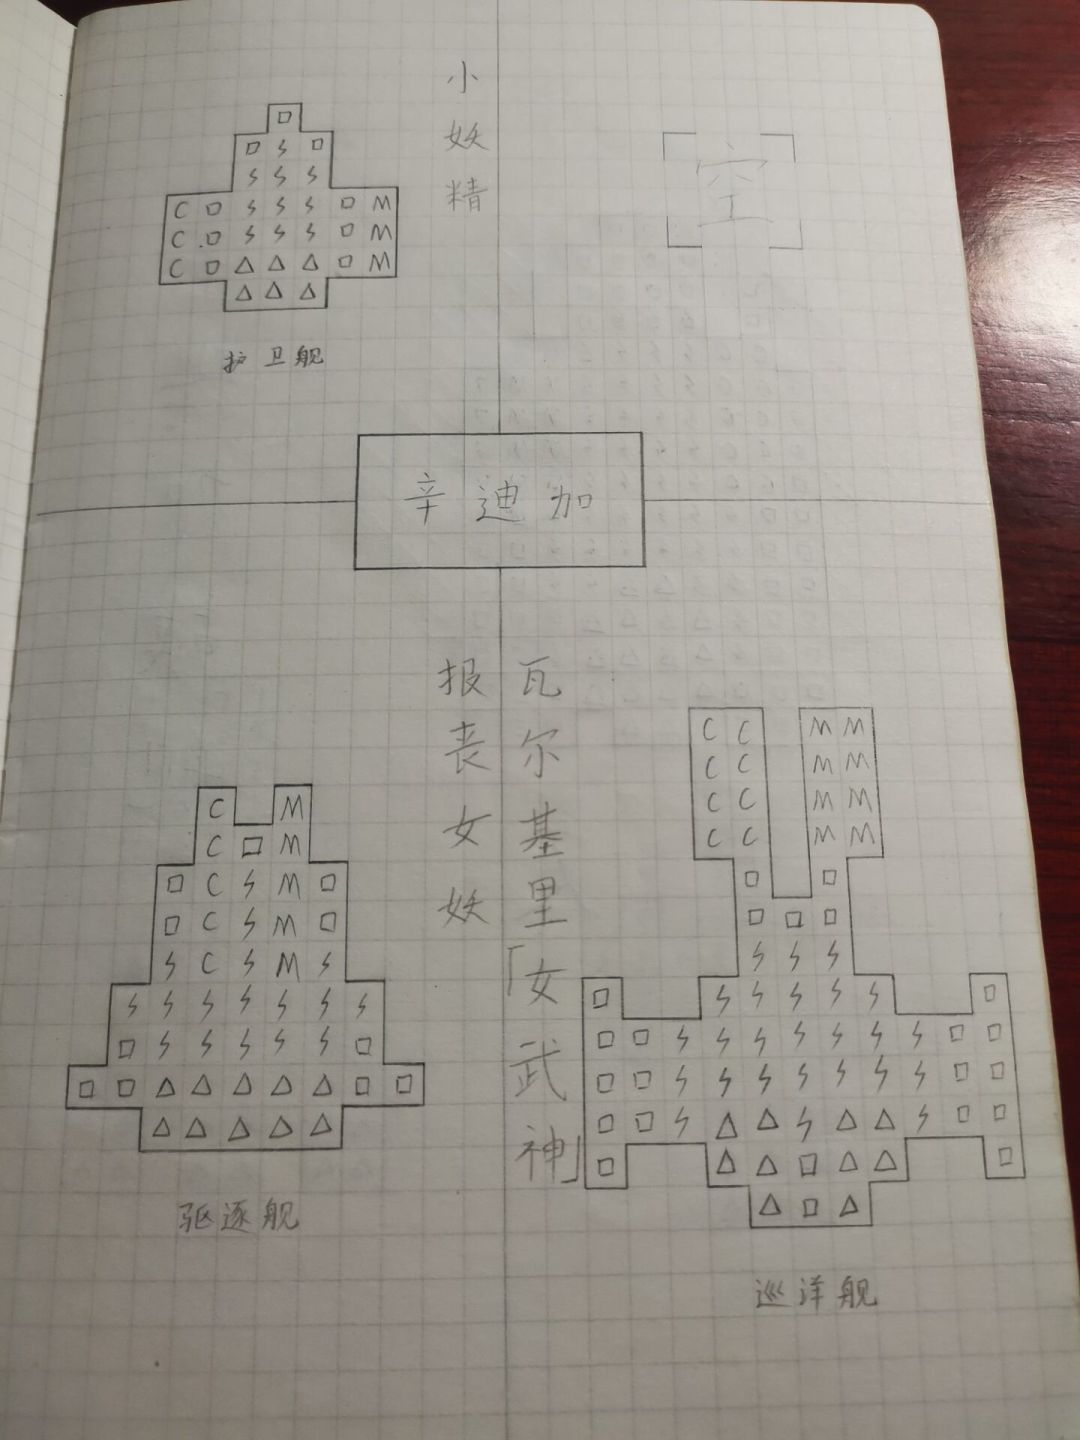 小妖精
空
□
□ ϟ □
ϟ ϟ ϟ
C □ ϟ ϟ ϟ □ M
C □ ϟ ϟ ϟ □ M
C □ △ △ △ □ M
△ △ △
护卫舰
辛迪加
报丧女妖
C M
C □ M
□ C ϟ M □
□ C ϟ M □
ϟ C ϟ M ϟ
ϟ ϟ ϟ ϟ ϟ ϟ ϟ
□ ϟ ϟ ϟ ϟ ϟ □
□ □ △ △ △ △ △ □ □
△ △ △ △ △
驱逐舰
瓦尔基里「女武神」
C C M M
C C M M
C C M M
C C M M
□ □
□ □ □
ϟ ϟ ϟ
□ ϟ ϟ ϟ ϟ ϟ □
□ □ ϟ ϟ ϟ ϟ ϟ ϟ ϟ □ □
□ □ ϟ ϟ ϟ ϟ ϟ ϟ ϟ □ □
□ □ ϟ △ △ ϟ △ △ ϟ □ □
□ △ △ □ △ △ □
△ □ △
巡洋舰